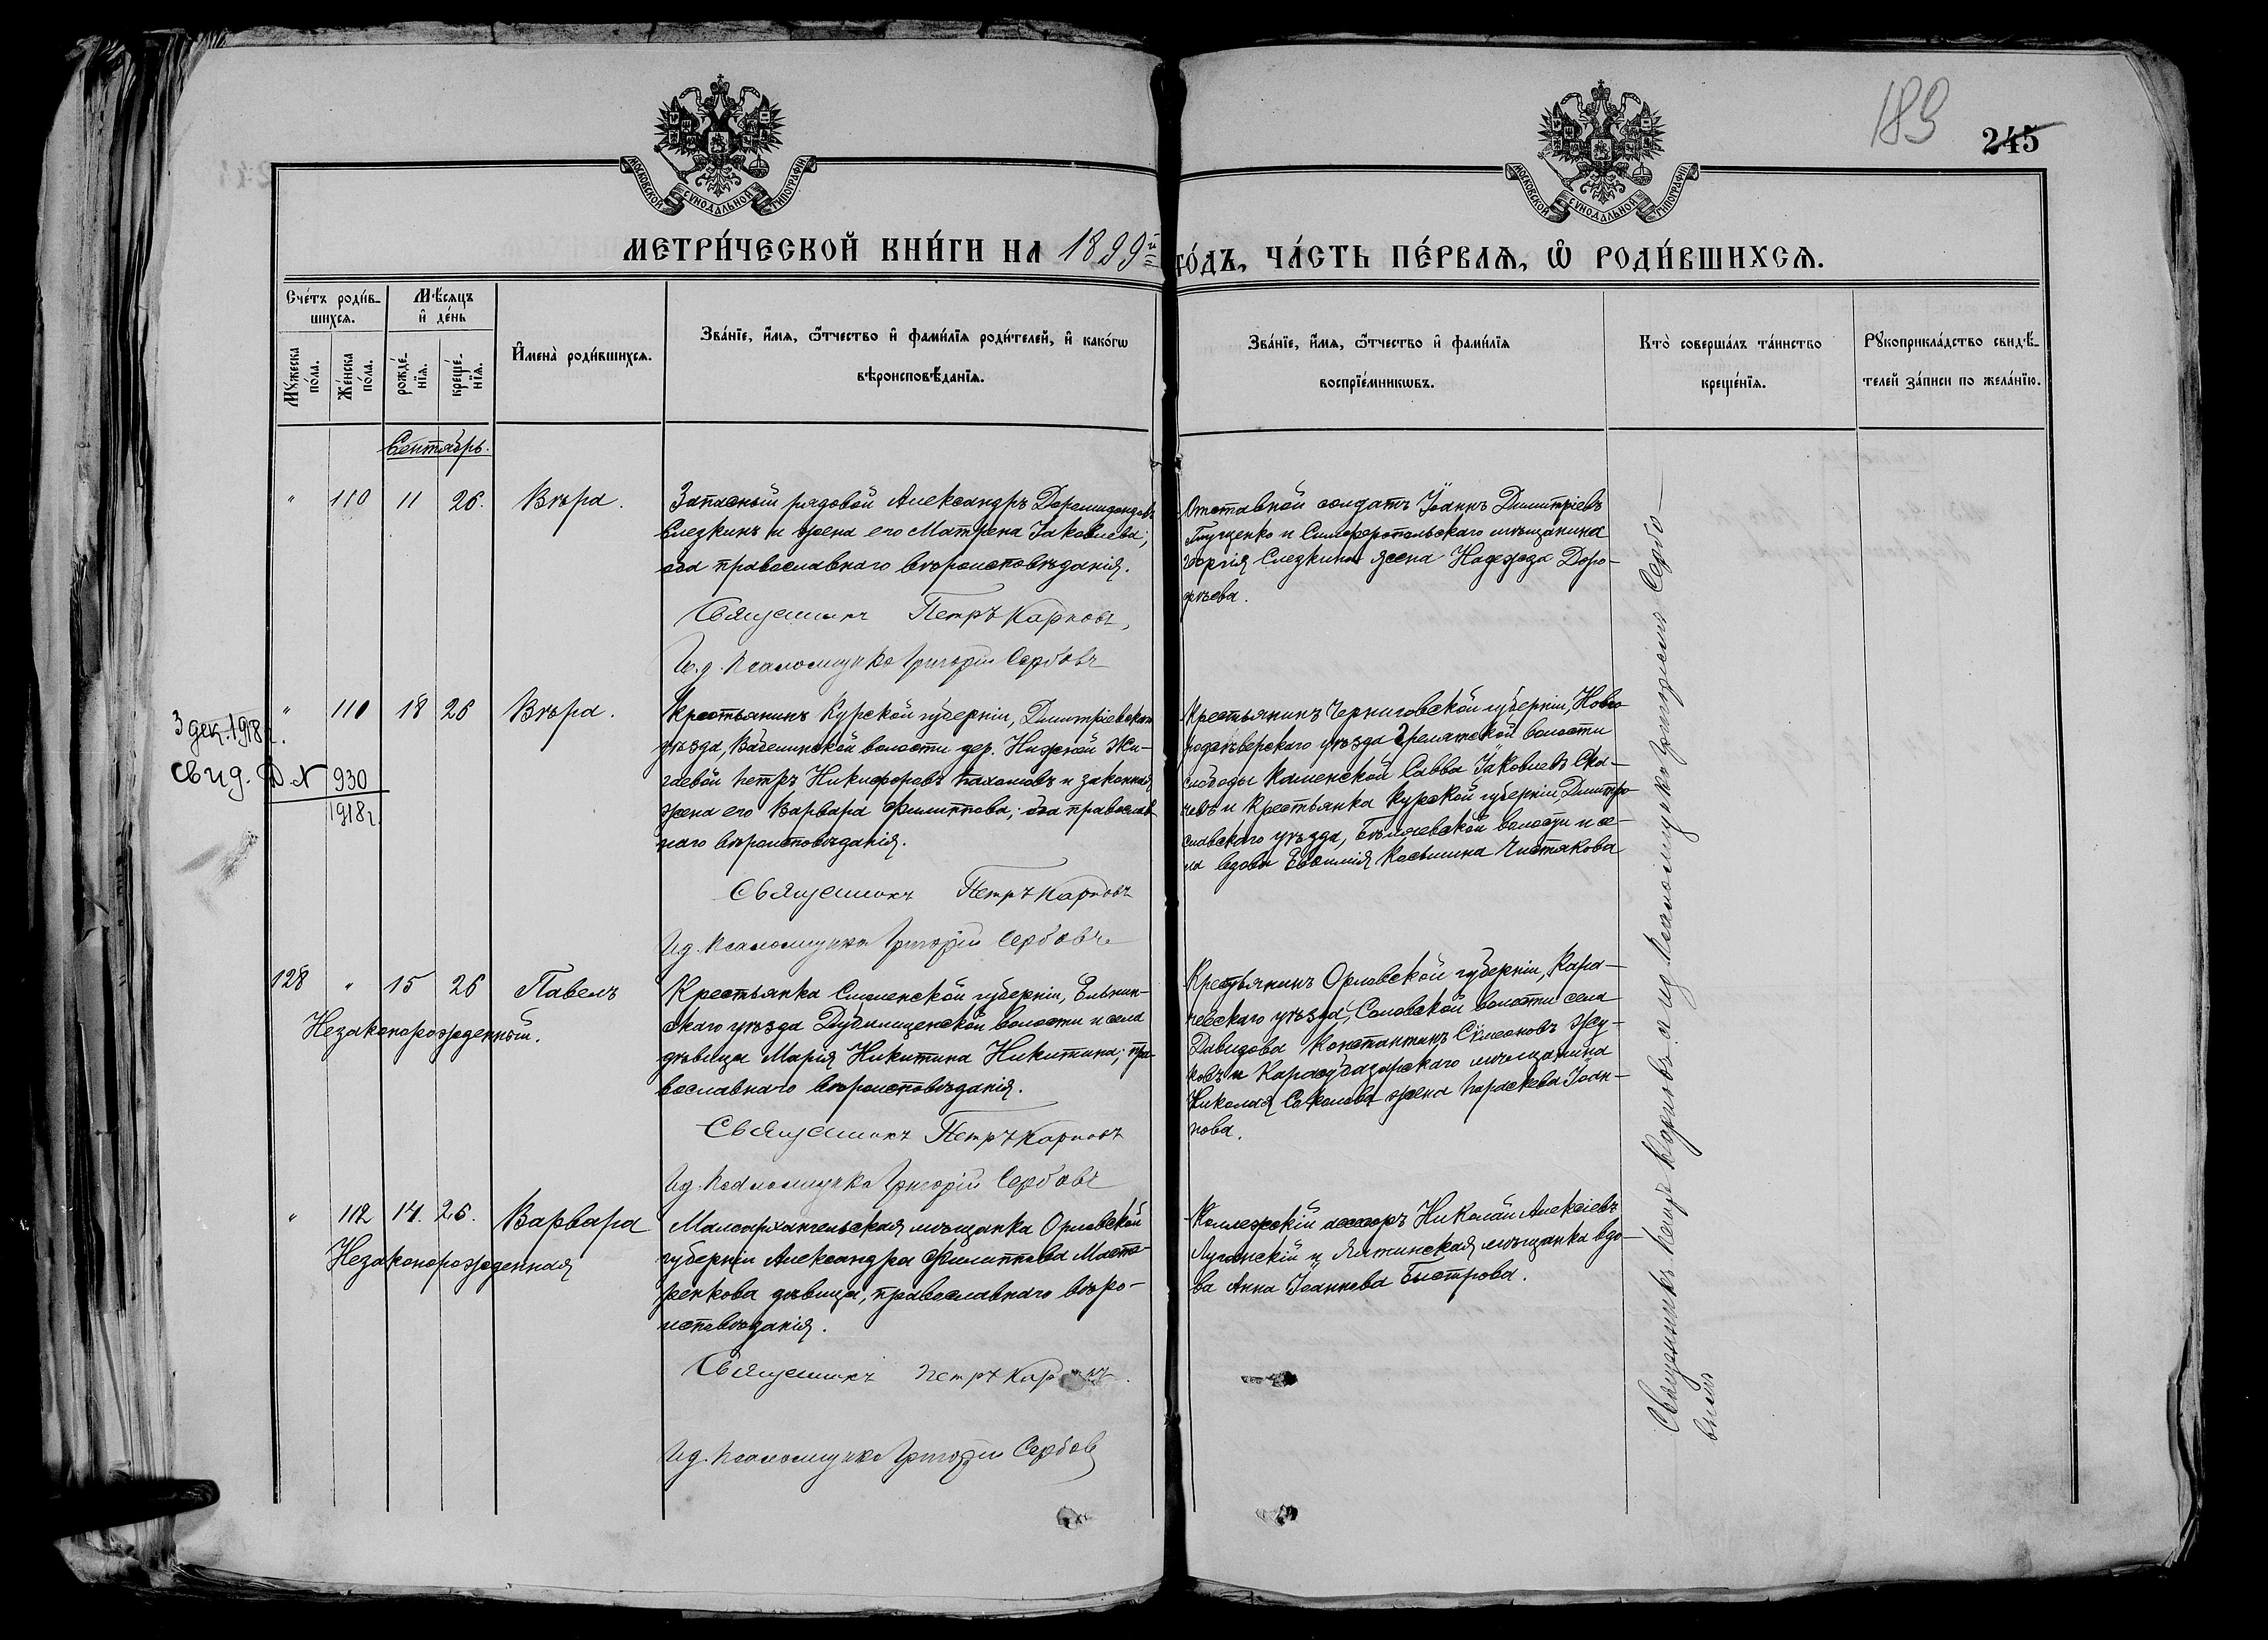 183
245
МОСКОВСКОЙ СѴНОДАЛЬНОЙ ТИПОГРАФІИ
МОСКОВСКОЙ СѴНОДАЛЬНОЙ ТИПОГРАФІИ
МЕТРИ́ЧЕСКОЙ КНИ́ГИ НА 1899й
ГО́ДЪ, ЧА́СТЬ ПЕ́РВАЯ, Ѡ РОДИ́ВШИХСЯ.
Сче́тъ роди́в-
шихся.
Му́жеска
по́ла.
Же́нска
по́ла.
Мѣ́сяцъ
и де́нь
рожде́-
нїя.
креще́-
нїя.
Имена̀ роди́вшихся.
Зва́нїе, и́мя, ѻ́тчество и фами́лїя роди́телей, и како́гѡ
вѣроисповѣ́данїя.
Зва́нїе, и́мя, ѻ́тчество и фами́лїя
воспрїе́мникѡвъ.
Кто̀ соверша́лъ та́инство
креще́нїя.
Рꙋкоприкла́дство свидѣ́-
телей за́писи по жела́нїю.
Сентябрь.
" 110 11 26. Вѣра.
Запасный рядовой Александръ Доримидонтовъ
Следкинъ и жена его Матрена Іаковлева;
оба православнаго вѣроисповѣданія.
Священникъ Петръ Карповъ,
И.д. Псаломщика Григорій Сербовъ
Отставной солдатъ Іоаннъ Димитріевъ
Глущенко и Симферопольскаго мѣщанина
Георгія Следкина жена Надежда Доро-
фѣева.
3 дек. 1918 г.
свид. № 930
1918 г.
" 110 18 26 Вѣра.
Крестьянинъ Курской губерніи, Димитріевскаго
уѣзда, волости дер. Нижней Жи-
гаевой Петръ Никифоровъ Пахомовъ и законная
жена его Варвара Филиппова; оба православ-
наго вѣроисповѣданія.
Священникъ Петръ Карповъ
И.д. Псаломщика Григорій Сербовъ
Крестьянинъ Черниговской губерніи, Новго-
родсѣверскаго уѣзда волости
слободы Каменской Савва Іаковлевъ Ска-
и крестьянка Курской губерніи, Димитро-
славскаго уѣзда, волости и се-
ла вдова Евѳимія Косьмина Чистякова
128 " 15 26 Павелъ
Незаконорожденный.
Крестьянка Смоленской губерніи, Ельнин-
скаго уѣзда волости и села
дѣвица Марія Никитина Никитина; пра-
вославнаго вѣроисповѣданія.
Священникъ Петръ Карповъ
И.д. Псаломщика Григорій Сербовъ
Крестьянинъ Орловской губерніи, Кара-
чевскаго уѣзда, волости села
Давидова Константинъ Сѵмеоновъ Жу-
ковъ и Карасубазарскаго мѣщанина
Николая Соколова жена Параскева Іоан-
нова.
" 112 14. 26. Варвара
Незаконорожденная
Малоархангельская мѣщанка Орловской
губерніи Александра Филиппова Масте-
ренкова дѣвица, православнаго вѣро-
исповѣданія.
Священникъ Петръ Карповъ.
И.д. Псаломщика Григорій Сербовъ
Коллежскій ассесоръ Николай Алексіевъ
Луганскій и Ялтинская мѣщанка вдо-
ва Анна Іоаннова Быстрова.
Священникъ Петръ Карповъ и и.д. псаломщика Григорій Сербо-
вымъ